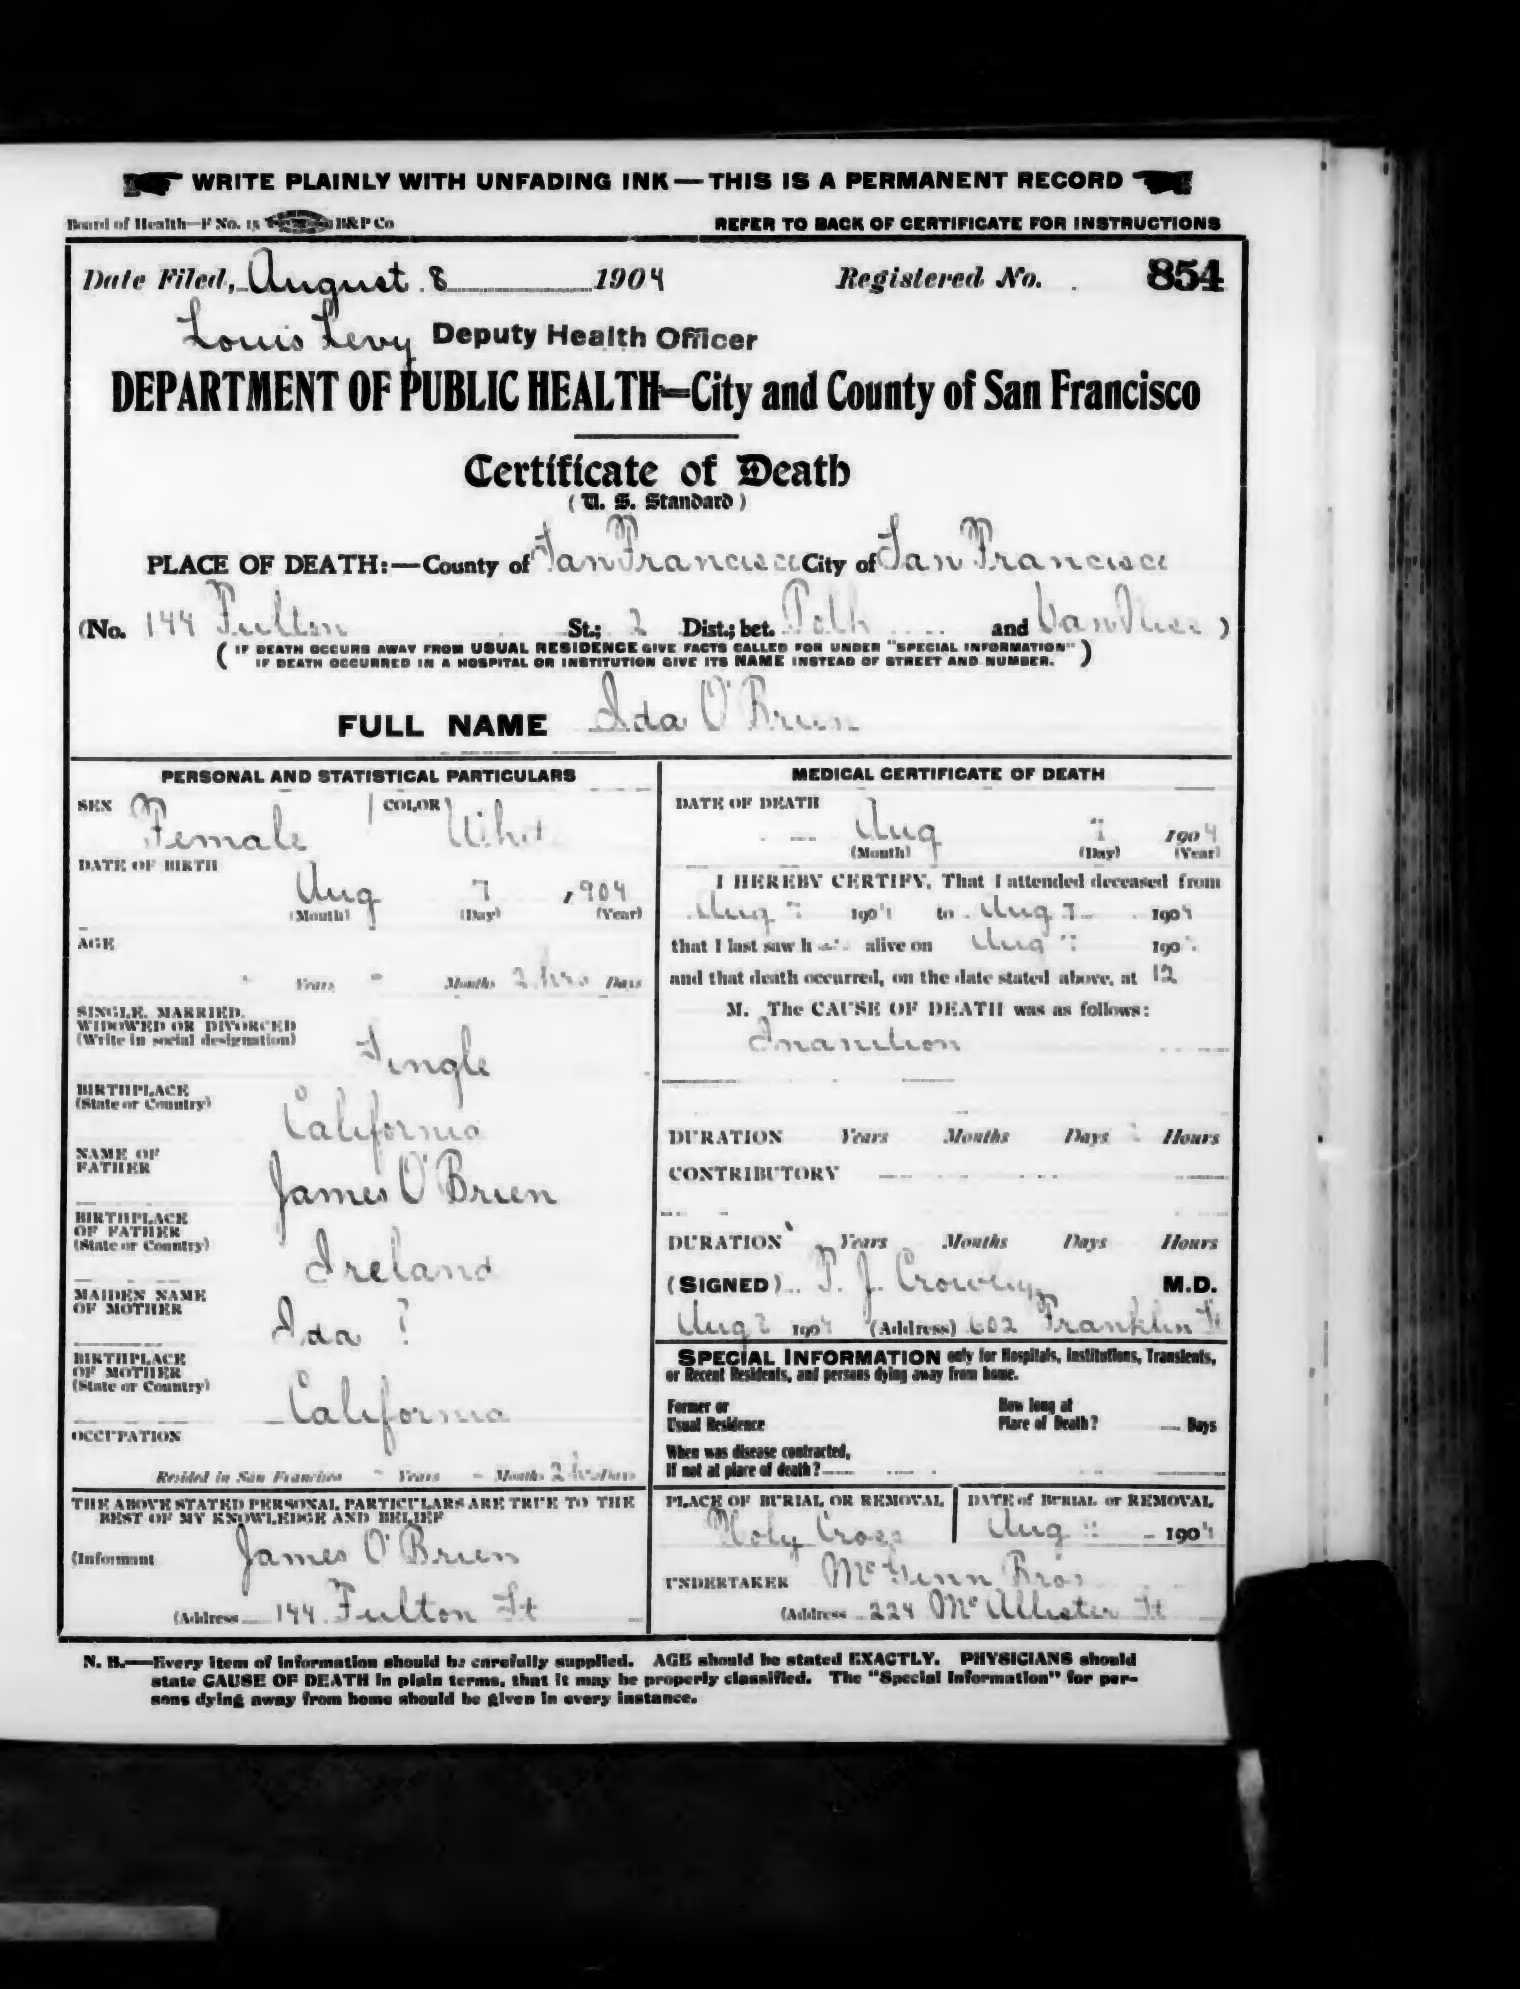 WRITE PLAINLY WITH UNFADING INK — THIS IS A PERMANENT RECORD
Board of Health—F No. 15 B&P Co REFER TO BACK OF CERTIFICATE FOR INSTRUCTIONS
Date Filed, August 8 1904 Registered No. 854
Louis Levy Deputy Health Officer
DEPARTMENT OF PUBLIC HEALTH—City and County of San Francisco
Certificate of Death
(U. S. Standard)
PLACE OF DEATH:—County of San Francisco City of San Francisco
(No. 144 Fulton St.; 2 Dist.; bet. Polk and Van Ness )
( IF DEATH OCCURS AWAY FROM USUAL RESIDENCE GIVE FACTS CALLED FOR UNDER "SPECIAL INFORMATION" )
IF DEATH OCCURRED IN A HOSPITAL OR INSTITUTION GIVE ITS NAME INSTEAD OF STREET AND NUMBER.
FULL NAME Ida O'Brien
PERSONAL AND STATISTICAL PARTICULARS
SEX Female COLOR White
DATE OF BIRTH
Aug 7 1904
(Month) (Day) (Year)
AGE
Years Months 2 hrs Days
SINGLE, MARRIED,
WIDOWED OR DIVORCED
(Write in social designation)
Single
BIRTHPLACE
(State or Country)
California
NAME OF
FATHER
James O'Brien
BIRTHPLACE
OF FATHER
(State or Country)
Ireland
MAIDEN NAME
OF MOTHER
Ida ?
BIRTHPLACE
OF MOTHER
(State or Country)
California
OCCUPATION
Resided in San Francisco - Years - Months 2 hrs Days
THE ABOVE STATED PERSONAL PARTICULARS ARE TRUE TO THE
BEST OF MY KNOWLEDGE AND BELIEF
(Informant James O'Brien
(Address 144 Fulton St
MEDICAL CERTIFICATE OF DEATH
DATE OF DEATH
Aug 7 1904
(Month) (Day) (Year)
I HEREBY CERTIFY, That I attended deceased from
Aug 7 1904 to Aug 7 1904
that I last saw h alive on Aug 7 190
and that death occurred, on the date stated above, at 12
M. The CAUSE OF DEATH was as follows:
Inanition
DURATION Years Months Days Hours
CONTRIBUTORY
DURATION Years Months Days Hours
(SIGNED) P. J. Crowley M.D.
Aug 1904 (Address) 602 Franklin St
SPECIAL INFORMATION only for Hospitals, Institutions, Transients,
or Recent Residents, and persons dying away from home.
Former or
Usual Residence
How long at
Place of Death? Days
When was disease contracted,
If not at place of death?
PLACE OF BURIAL OR REMOVAL
Holy Cross
DATE of BURIAL or REMOVAL
Aug 1904
UNDERTAKER McGinn Bros
(Address 224 McAllister St
N. B.—Every item of information should be carefully supplied. AGE should be stated EXACTLY. PHYSICIANS should
state CAUSE OF DEATH in plain terms, that it may be properly classified. The "Special Information" for per-
sons dying away from home should be given in every instance.